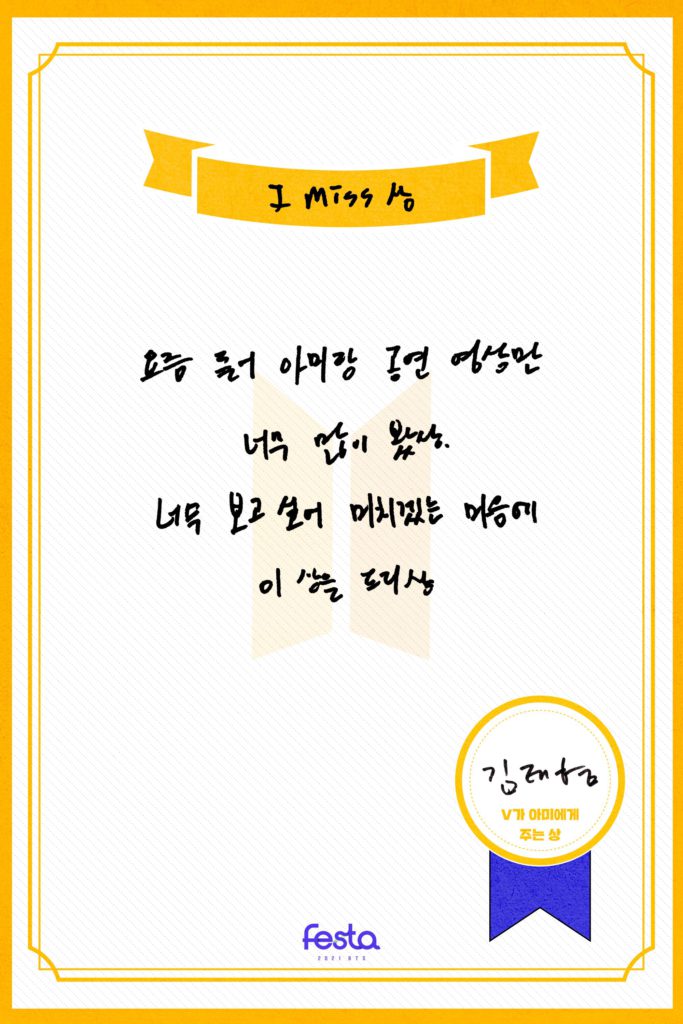 I Miss 상
요즘 들어 아미랑 공연 영상만
너무 많이 봤상.
너무 보고 싶어 미치겠는 마음에
이 상을 드리상
김태형
V가 아미에게
주는 상
festa
2021 BTS